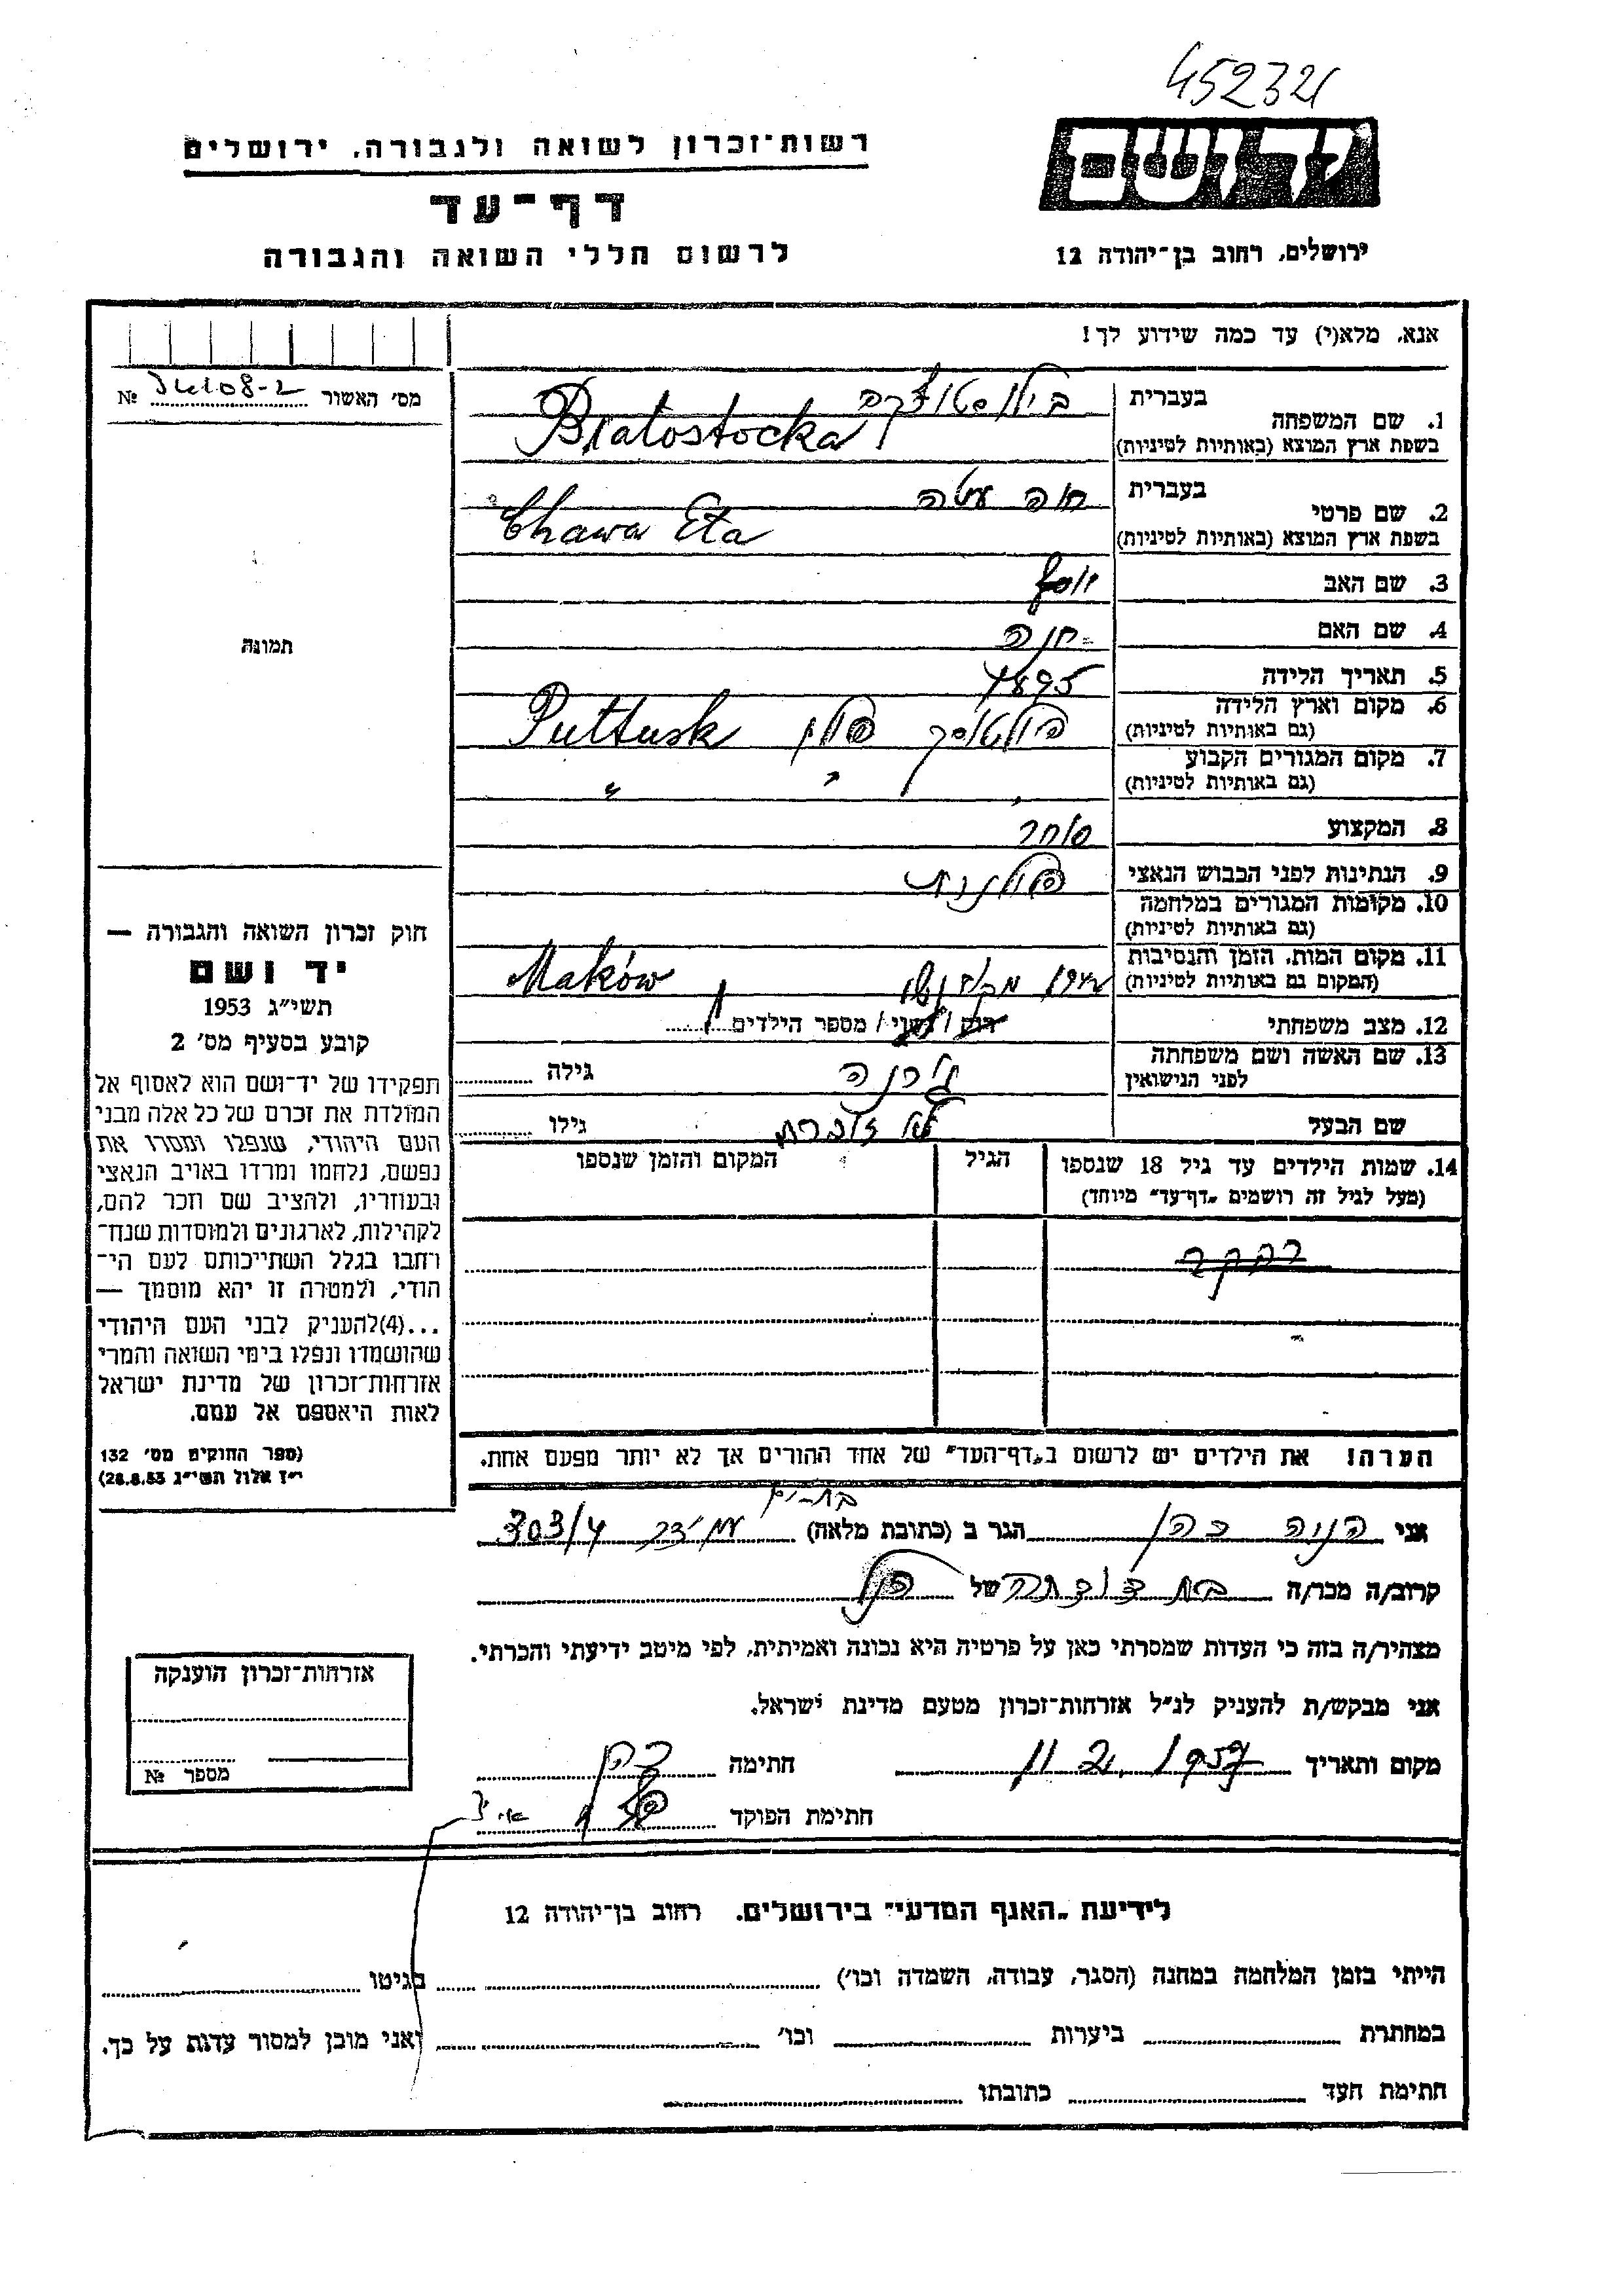 452321
רשות־זכרון לשואה ולגבורה, ירושלים
יד ושם
דף־עד
לרשום חללי השואה והגבורה
ירושלים, רחוב בן־יהודה 12
אנא, מלא(י) עד כמה שידוע לך!
מס׳ האשור № 34108-2
תמונה
חוק זכרון השואה והגבורה —
יד ושם
תשי״ג 1953
קובע בסעיף מס׳ 2
תפקידו של יד־ושם הוא לאסוף אל
המולדת את זכרם של כל אלה מבני
העם היהודי, שנפלו ומסרו את
נפשם, נלחמו ומרדו באויב הנאצי
ובעוזריו, ולהציב שם וזכר להם,
לקהילות, לארגונים ולמוסדות שנח־
רחבו בגלל השתייכותם לעם הי־
הודי, ולמטרה זו יהא מוסמך —
...(4)להעניק לבני העם היהודי
שהושמדו ונפלו בימי השואה והמרי
אזרחות־זכרון של מדינת ישראל
לאות היאספם אל עמם.
(ספר החוקים מס׳ 132
י״ז אלול תשי״ג 28.8.53)
1. שם המשפחה בעברית ביאלוסטוצקה
בשפת ארץ המוצא (באותיות לטיניות) Białostocka
2. שם פרטי בעברית חוה עטה
בשפת ארץ המוצא (באותיות לטיניות) Chawa Eta
3. שם האב יוסף
4. שם האם חנה
5. תאריך הלידה 1895
6. מקום וארץ הלידה פולטוסק פולין Pułtusk
(גם באותיות לטיניות)
7. מקום המגורים הקבוע " " "
(גם באותיות לטיניות)
8. המקצוע סוחר
9. הנתינות לפני הכבוש הנאצי פולנית
10. מקומות המגורים במלחמה
(גם באותיות לטיניות)
11. מקום המות, הזמן והנסיבות Maków
(המקום גם באותיות לטיניות)
12. מצב משפחתי רוק / נשוי / מספר הילדים
13. שם האשה ושם משפחתה
לפני הנישואין גילה
שם הבעל גילו
14. שמות הילדים עד גיל 18 שנספו הגיל המקום והזמן שנספו
(מעל לגיל זה רושמים „דף־עד״ מיוחד)
רבקה
הערה! את הילדים יש לרשום ב„דף־העד״ של אחד ההורים אך לא יותר מפעם אחת.
בת-ים
אני הניה כהן הגר ב (כתובת מלאה) 303/4
קרוב/ה מכר/ה בת דודתה של הנ״ל
מצהיר/ה בזה כי העדות שמסרתי כאן על פרטיה היא נכונה ואמיתית, לפי מיטב ידיעתי והכרתי.
אני מבקש/ת להעניק לנ״ל אזרחות־זכרון מטעם מדינת ישראל.
מקום ותאריך 1957 חתימה כהן
חתימת הפוקד
אזרחות־זכרון הוענקה
מספר №
לידיעת „האגף המדעי״ בירושלים, רחוב בן־יהודה 12
הייתי בזמן המלחמה במחנה (הסגר, עבודה, השמדה וכו׳) בגיטו
במחתרת ביערות וכו׳ ואני מוכן למסור עדות על כך.
חתימת העד כתובתו